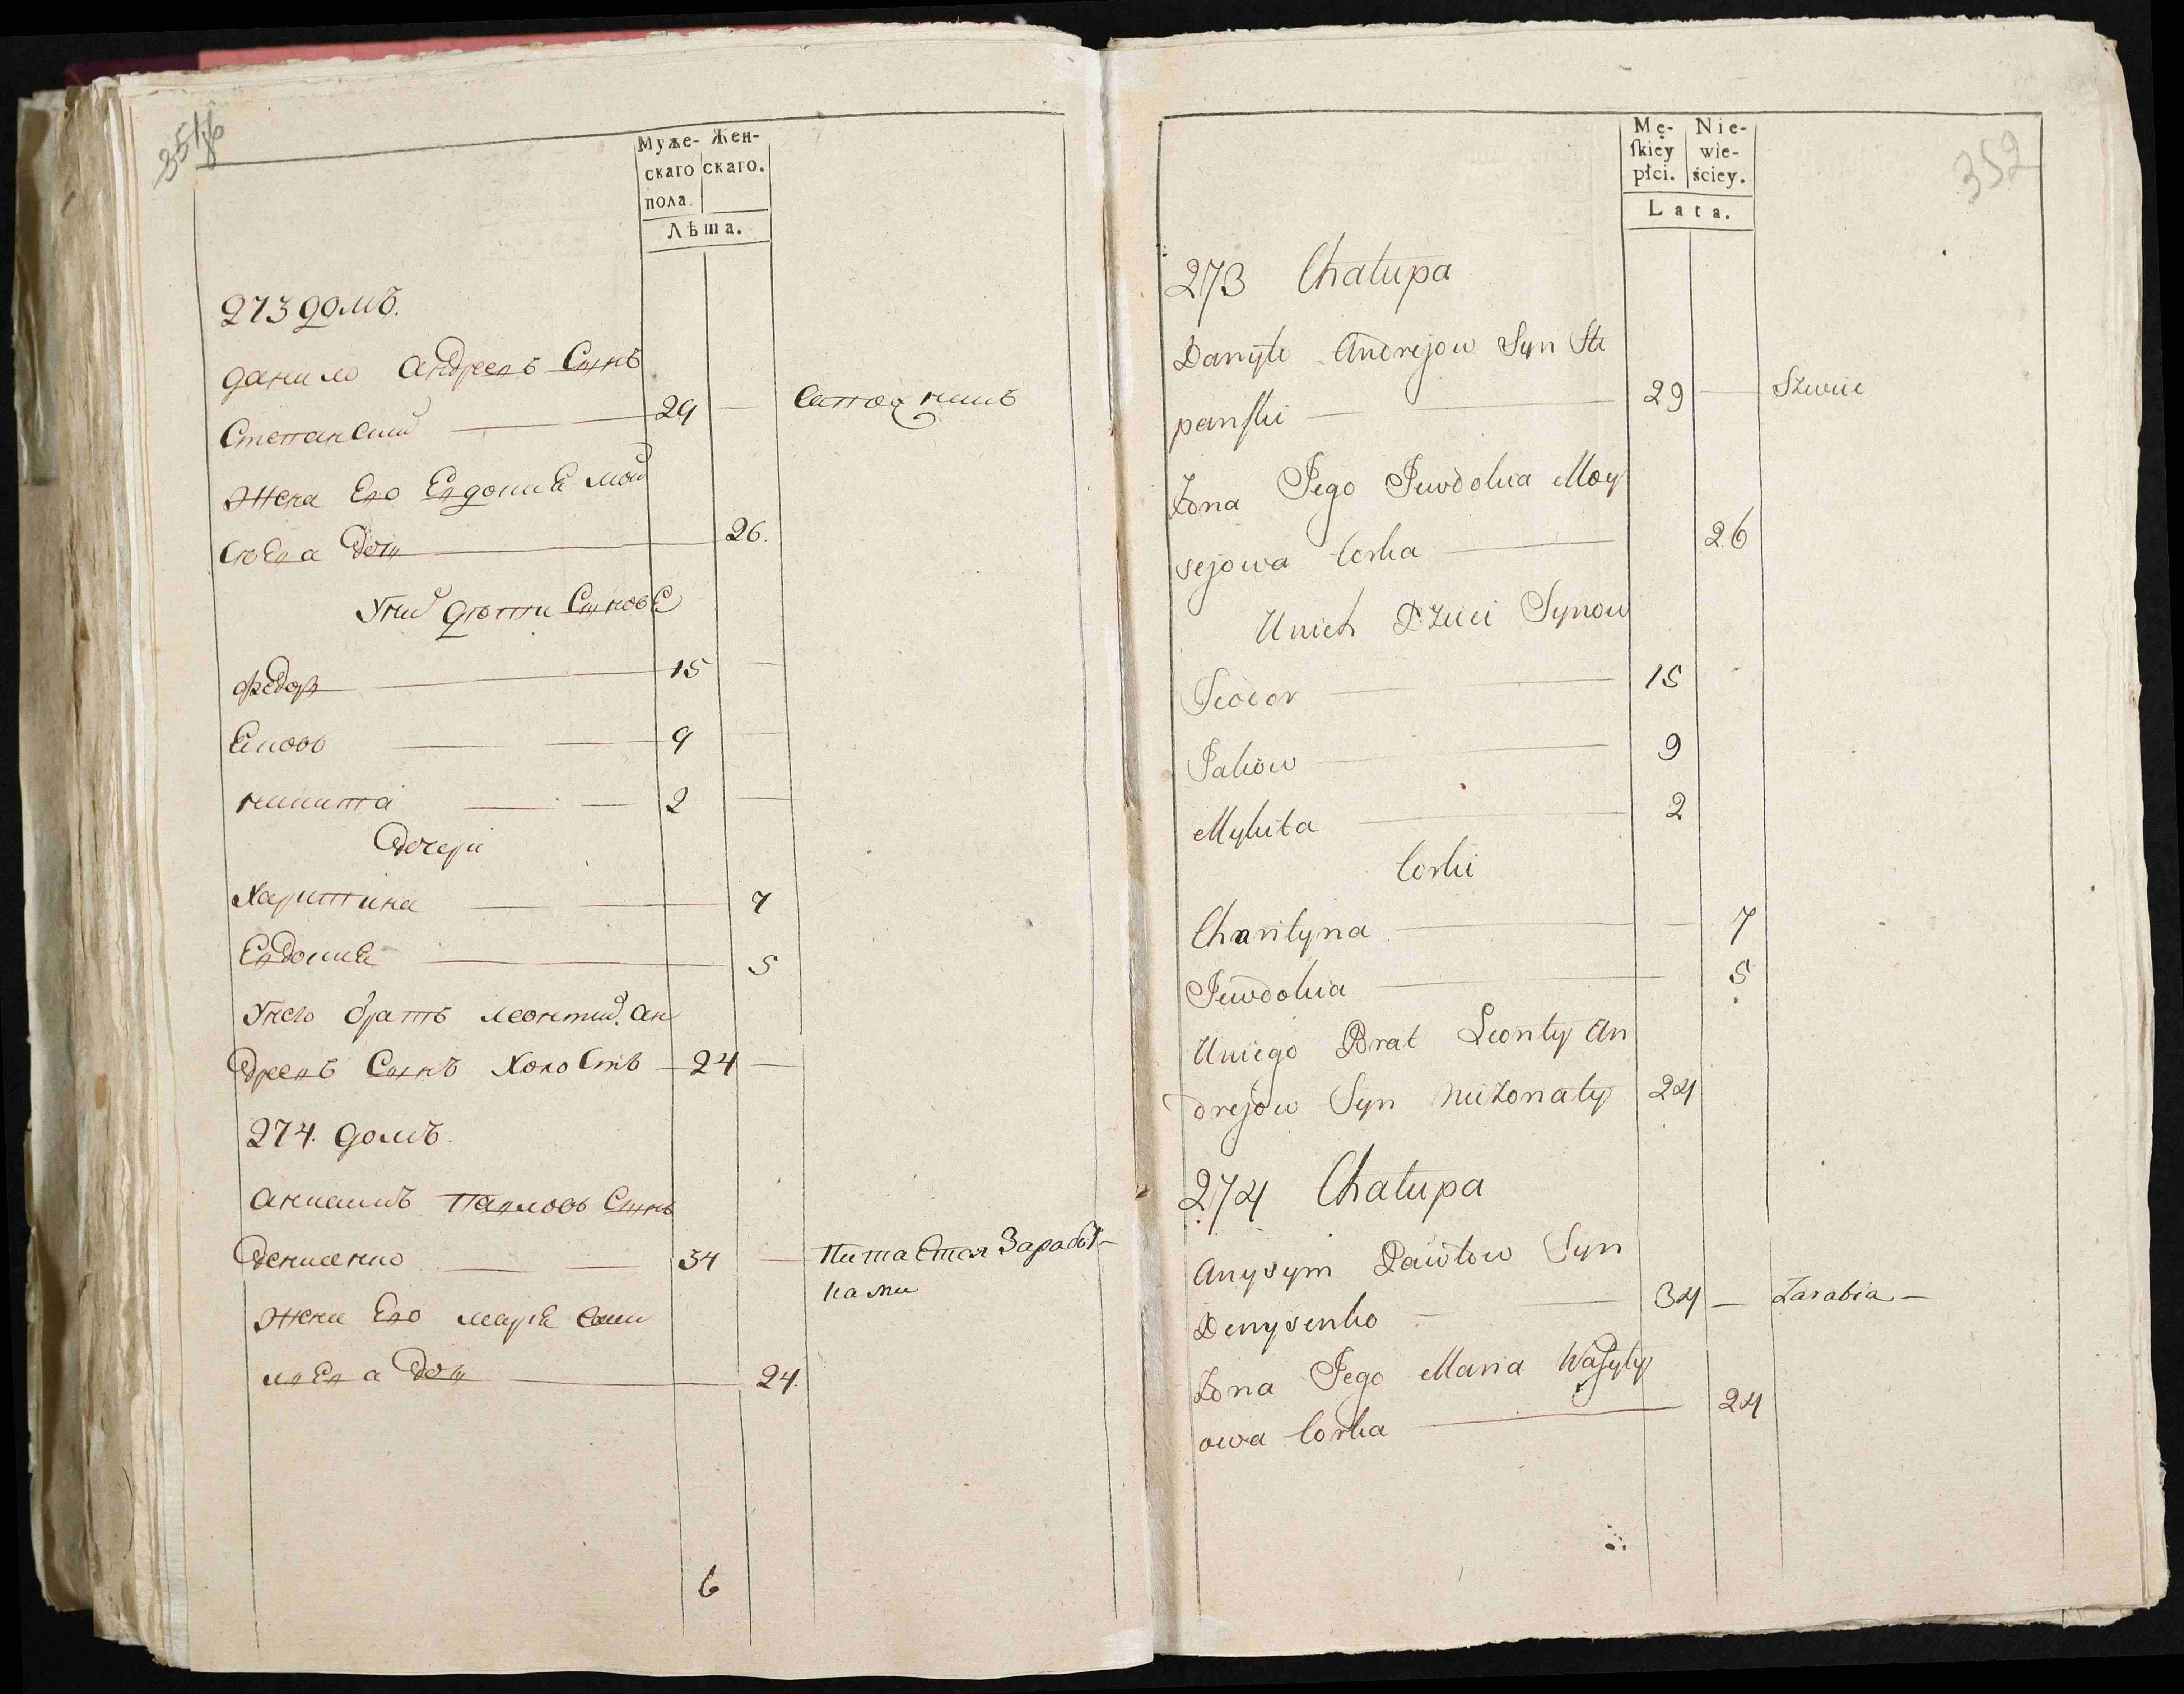 Муже- Жен-
скаго скаго.
пола.
Лѣта.
273 домъ.
данило Андреевъ Сынъ
Степанский 29 — Сапожникъ
Жена Его Евдокия Мой
сѣева дочь 26.
У них дѣти Сыновя
федор 15 —
Ековъ 9 —
никита 2 —
дочери
Харитина 7
Евдокия 5
У него братъ леонтий Ан
дреевъ Сынъ Холостъ 24 —
274. домъ.
Анисимъ Павловъ Сынъ
денисенко 34 — Питается Заработ-
ками
Жена Его маря Васи
лиева дочь 24.
6
352
Mę- Nie-
skiey wie-
płci. ściey.
Lata.
273 Chałupa
Danyło Andrejow Syn Ste
panski 29 — Szwiec
Żona Jego Jewdokia Moy
sejowa Corka 26
U nich Dzieci Synow
Feodor 15
Jakow 9
Mykita 2
Corki
Charityna 7
Jewdokia 5
U niego Brat Leonty An
drejow Syn nieżonaty 24
274 Chałupa
Anysym Pawłow Syn
Denysenko 34 — Zarabia —
Żona Jego Maria Wasyly
owa Corka 24